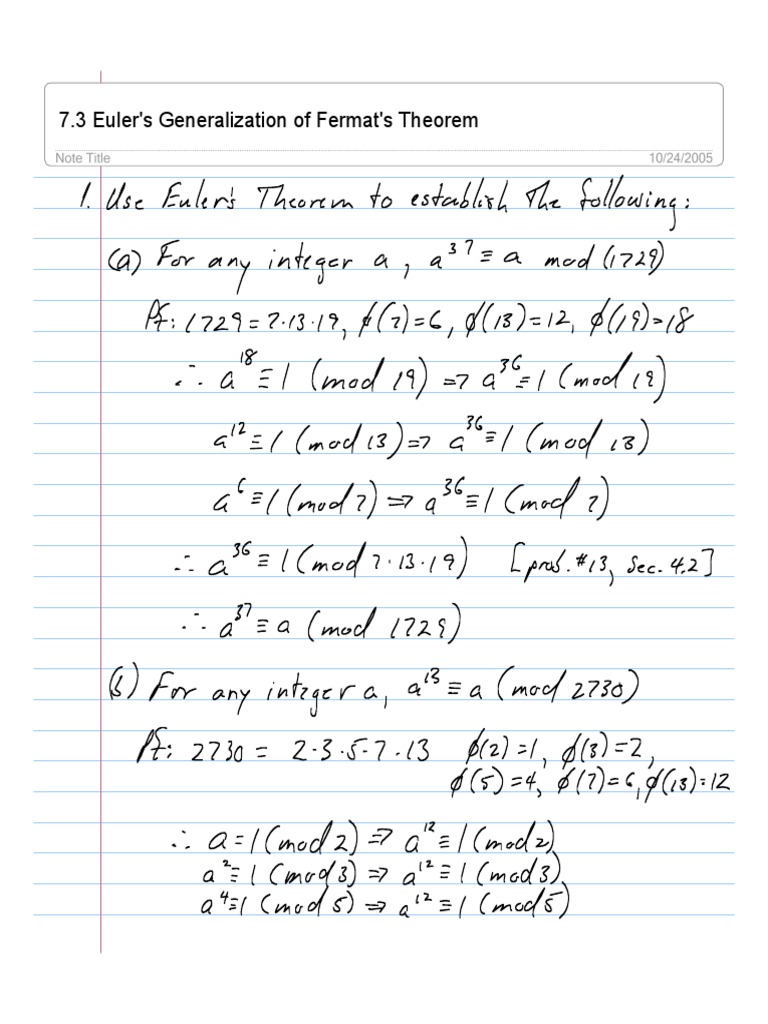 7.3 Euler's Generalization of Fermat's Theorem
Note Title 10/24/2005
1. Use Euler's Theorem to establish the following:
(a) For any integer a, a³⁷ ≡ a mod (1729)
Pf: 1729 = 7·13·19, ϕ(7)=6, ϕ(13)=12, ϕ(19)=18
∴ a¹⁸ ≡ 1 (mod 19) ⇒ a³⁶ ≡ 1 (mod 19)
a¹² ≡ 1 (mod 13) ⇒ a³⁶ ≡ 1 (mod 13)
a⁶ ≡ 1 (mod 7) ⇒ a³⁶ ≡ 1 (mod 7)
∴ a³⁶ ≡ 1 (mod 7·13·19) [prob. #13, Sec. 4.2]
∴ a³⁷ ≡ a (mod 1729)
(b) For any integer a, a¹³ ≡ a (mod 2730)
Pf: 2730 = 2·3·5·7·13 ϕ(2)=1, ϕ(3)=2,
ϕ(5)=4, ϕ(7)=6, ϕ(13)=12
∴ a = 1 (mod 2) ⇒ a¹² ≡ 1 (mod 2)
a² ≡ 1 (mod 3) ⇒ a¹² ≡ 1 (mod 3)
a⁴ ≡ 1 (mod 5) ⇒ a¹² ≡ 1 (mod 5)